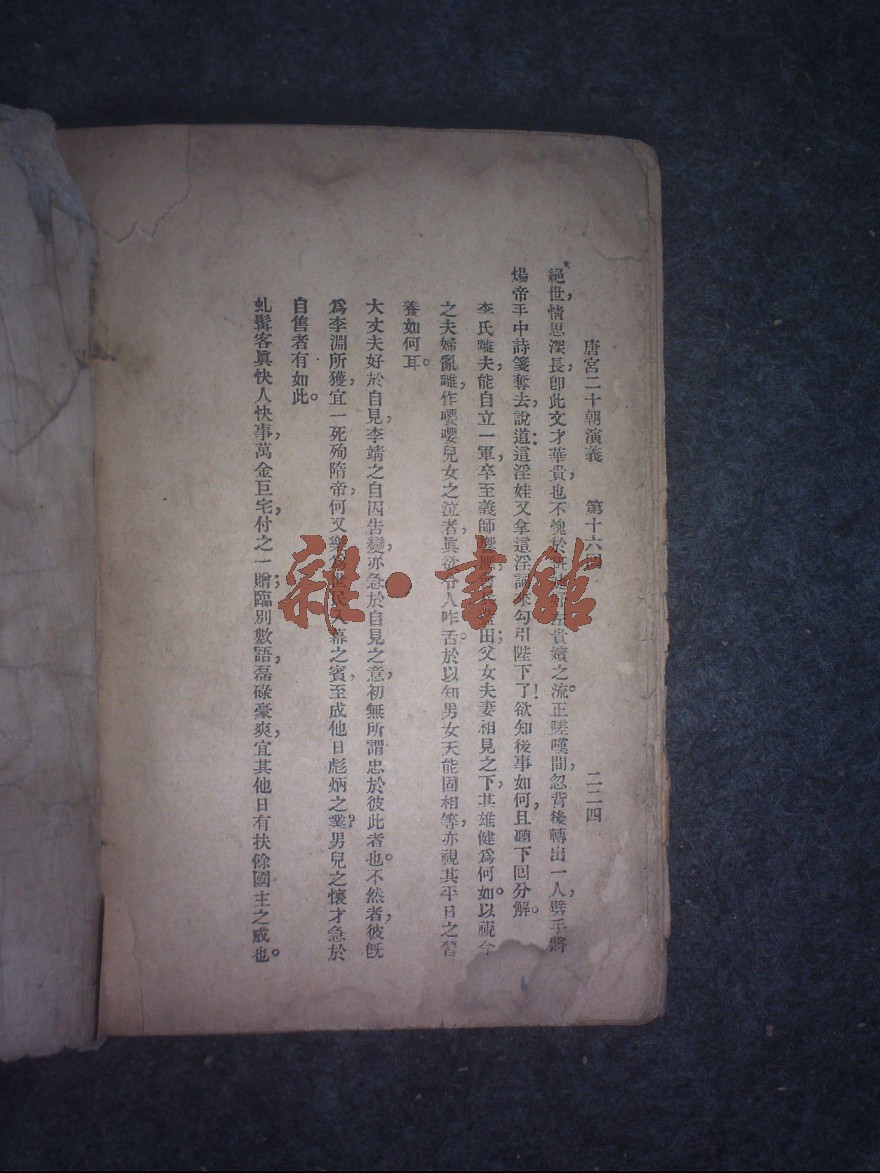 唐宮二十朝演義 第十六回 二二四
絕世，情思深長，卽此文才華貴，也不愧於 貴嬪之流。正嗟嘆間，忽背後轉出一人，劈手將
煬帝手中詩箋奪去，說道：這淫娃又拿這淫詞 勾引陛下了！欲知後事如何，且聽下回分解。
李氏離夫，能自立一軍，卒至義師響應 田；父女夫妻相見之下，其雄健爲何如。以視今
之夫婦亂離，作嚶嚶兒女之泣者，眞欲令人咋舌。於以知男女天能固相等，亦視其平日之習
養如何耳。
大丈夫好於自見，李靖之自囚告變，亦急於自見之意，初無所謂忠於彼此者也。不然者，彼旣
爲李淵所獲，宜一死殉隋帝，何又樂爲世民入幕之賓，至成他日彪炳之業？男兒之懷才急於
自售者有如此。
虬髯客眞快人快事，萬金巨宅，付之一贈；臨別數語，磊碌豪爽，宜其他日有扶餘國主之威也。
雜·書館